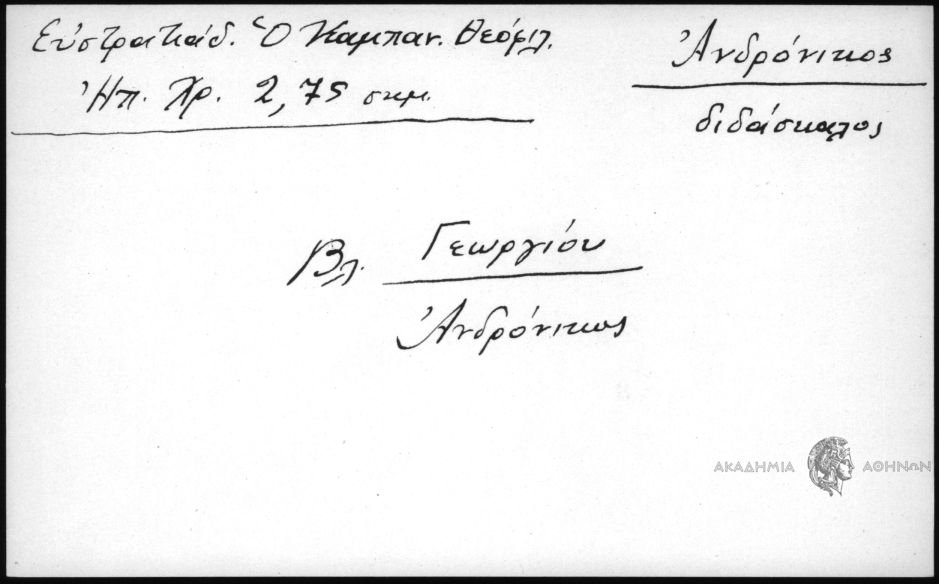 Εὐστρατιάδ. Ὁ Καμπαν. Θεόφιλ.
Ἠπ. Χρ. 2,75 σημ.
Ἀνδρόνικος
διδάσκαλος
Βλ. Γεωργίου
Ἀνδρόνικος
ΑΚΑΔΗΜΙΑ ΑΘΗΝΩΝ